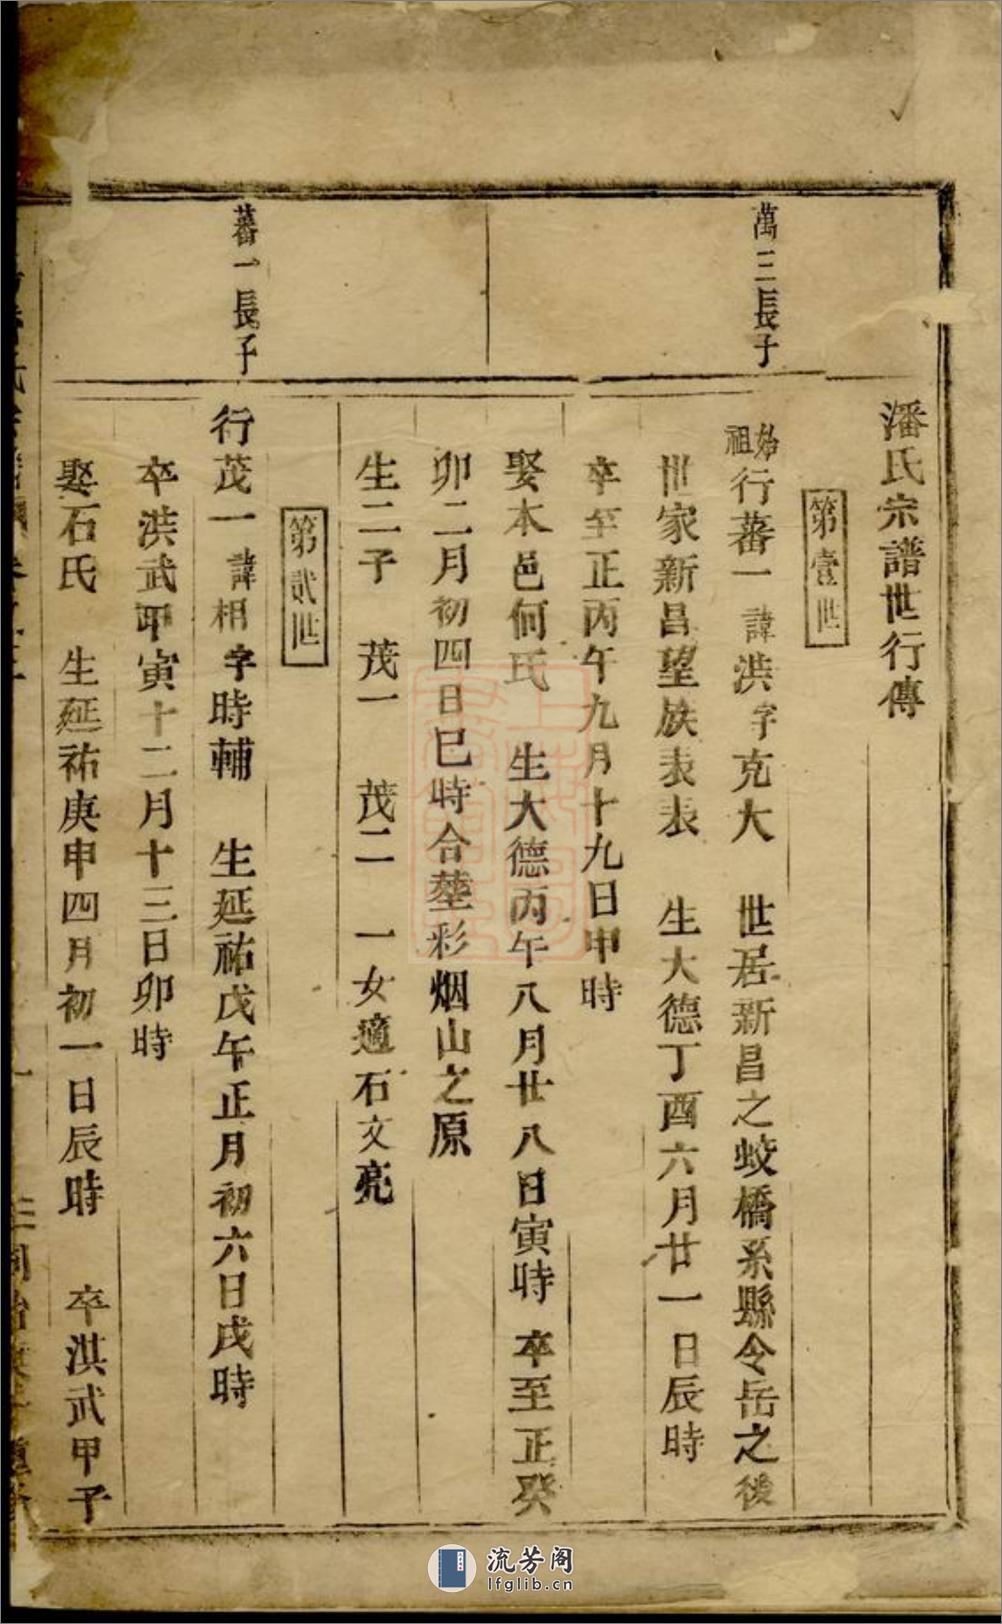 潘氏宗譜世行傳
第壹世
萬三長子
始祖行蕃一諱洪字克大 世居新昌之蛟橋系縣令岳之後
世家新昌望族表表 生大德丁酉六月廿一日辰時
卒至正丙午九月十九日申時
娶本邑何氏 生大德丙午八月廿八日寅時 卒至正癸
卯二月初四日巳時合塟彩烟山之原
生二子 茂一 茂二 一女適石文亮
第貳世
蕃一長子
行茂一諱相字時輔 生延祐戊午正月初六日戌時
卒洪武甲寅十二月十三日卯時
娶石氏 生延祐庚申四月初一日辰時 卒淇武甲子
流芳阁
lfglib.cn